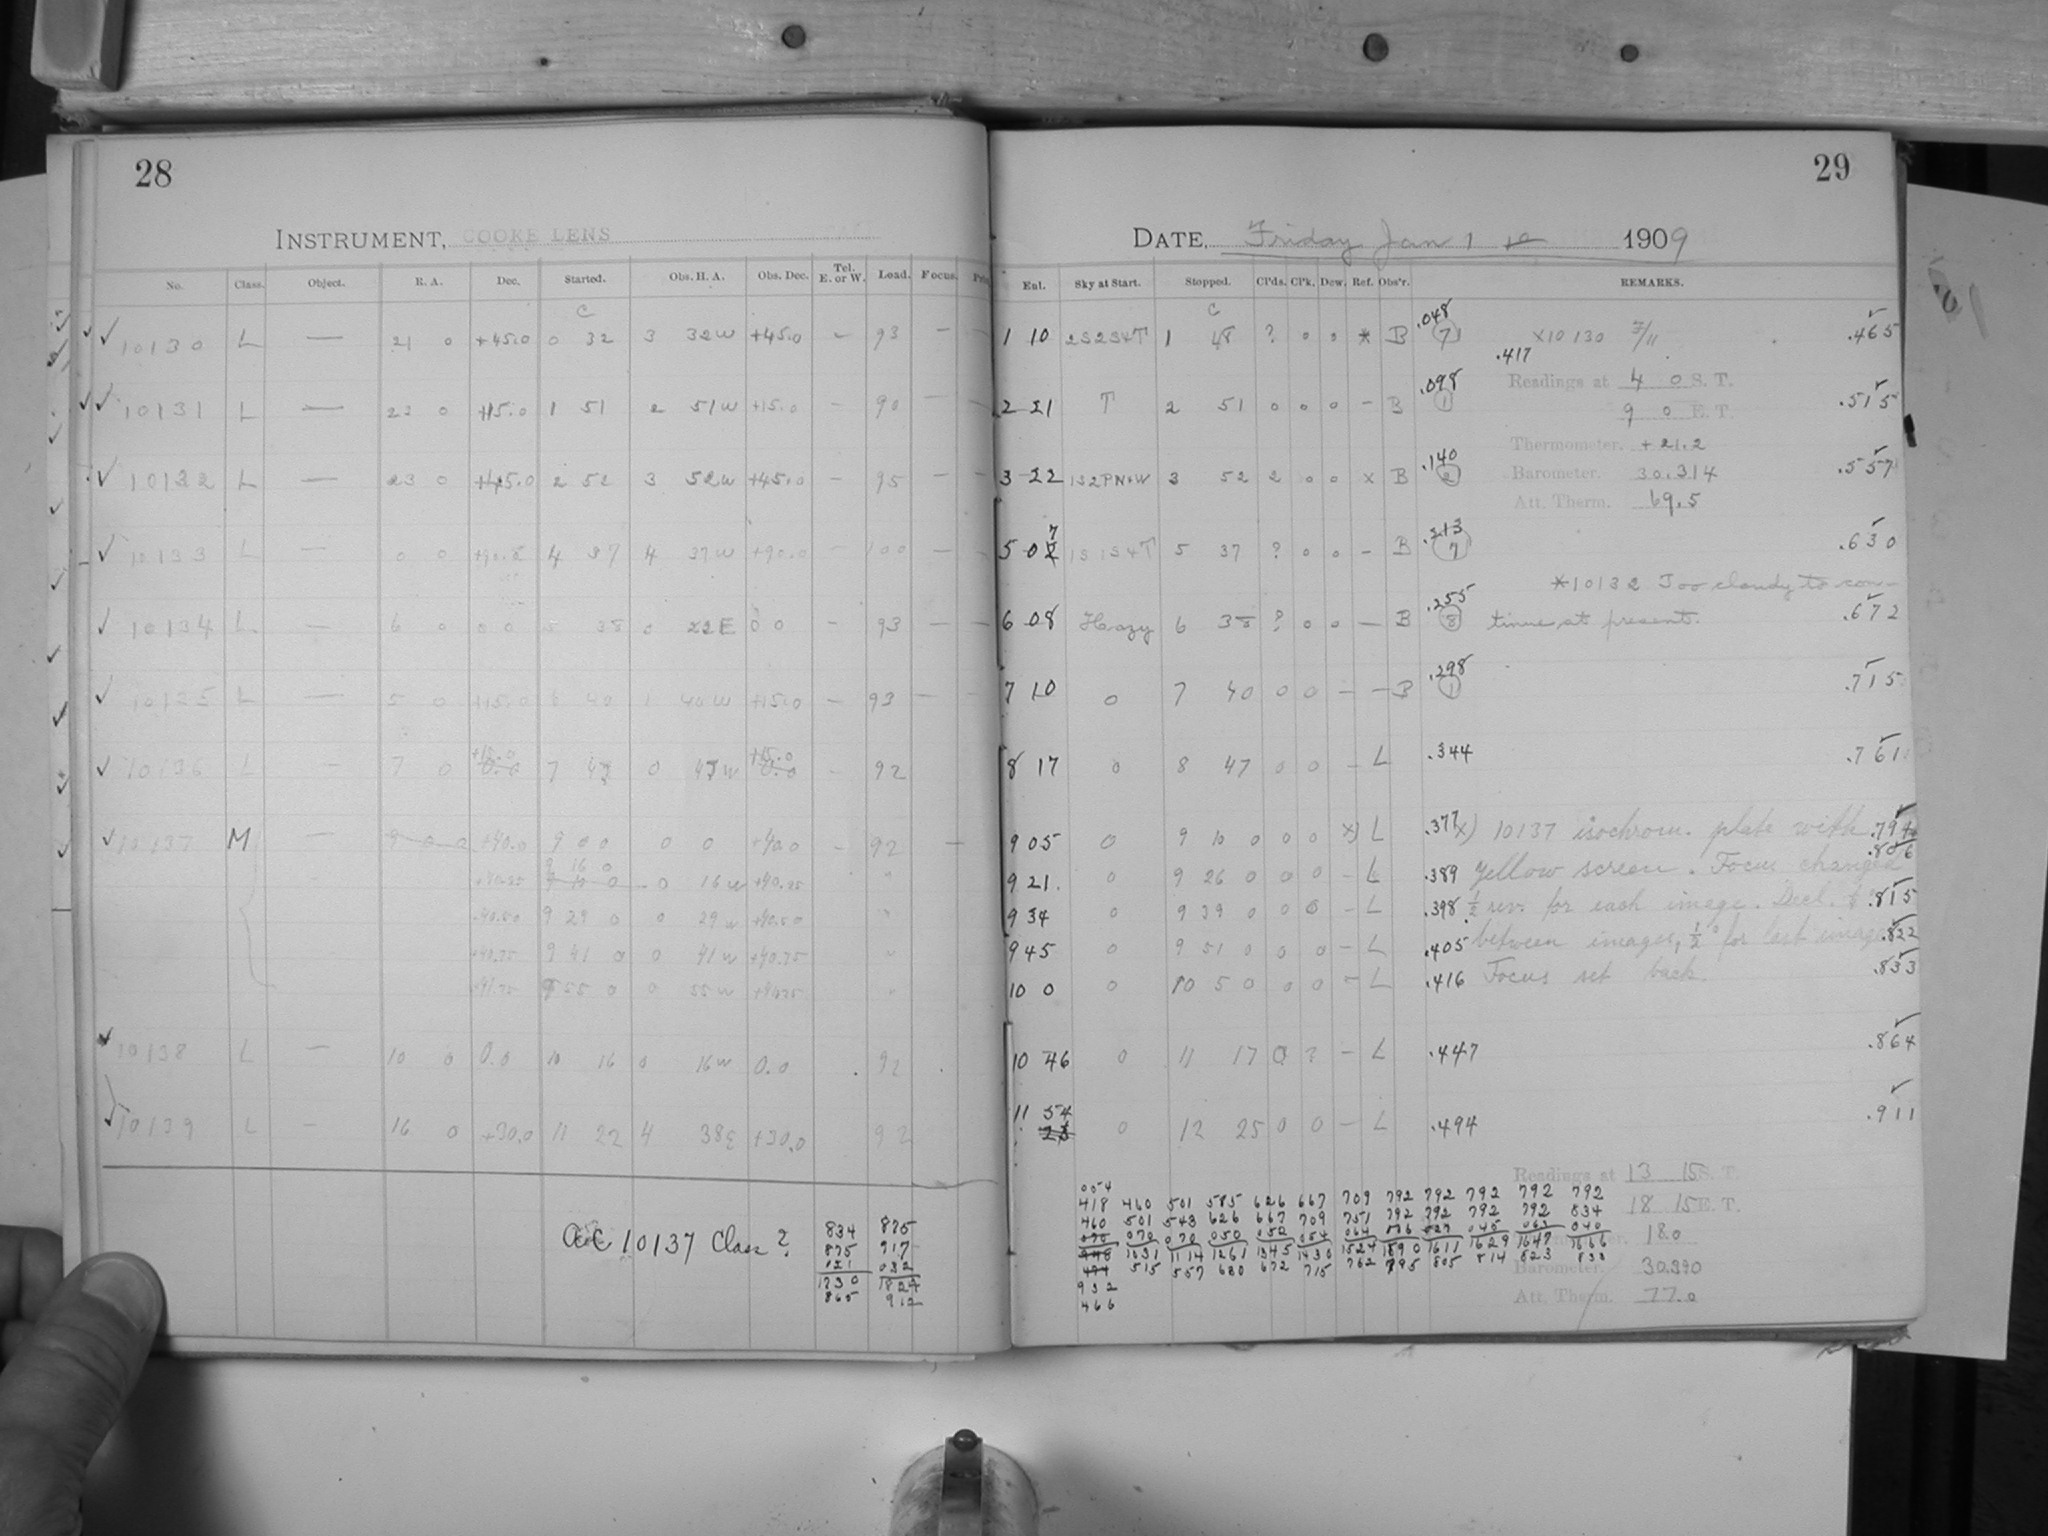 28
INSTRUMENT, COOKE LENS
No. Class. Object. R. A. Dec. Started. Obs. H. A. Obs. Dec. Tel. E. or W. Load. Focus.
C
10130 L — 21 0 +45.0 0 32 3 32W +45.0 – 93 –
10131 L — 23 0 +15.0 1 51 2 51W +15.0 – 90 –
10132 L — 23 0 +45.0 2 52 3 52W +45.0 – 95 –
10133 L — 0 0 4 37 4 37W +90.0 – 100 –
10134 L — 6 0 0 0 5 38 0 22E 0 0 – 93 –
10135 L — 5 0 +15.0 6 40 1 40W +15.0 – 93 –
10136 L – 7 0 +15.0 7 47 0 47W +15.0 – 92
10137 M — 9 0 0 +40.0 9 0 0 0 0 +40.0 – 92 –
+40.25 9 16 0 0 16W +40.25 "
+40.50 9 29 0 0 29W +40.50 "
+40.75 9 41 0 0 41W +40.75 "
+41.25 9 55 0 0 55W "
10138 L — 10 0 0.0 10 16 0 16W 0.0 92
10139 L – 16 0 +30.0 11 22 4 38E +30.0 92
10137 Class ?
834 875
875 917
021 032
1730 1824
865 912
29
DATE, Friday Jan 1 1909
Eul. Sky at Start. Stopped. Cl'ds. Cl'k. Dew. Ref. Obs'r. REMARKS.
C
1 10 2S2S4T 1 48 ? 0 0 * B .048 7 X10130 .465
.417
Readings at 4 0 S. T.
2 21 T 2 51 0 0 0 – B .098 1 .515
9 0 E. T.
Thermometer. +21.2
3 22 1S2PN+W 3 52 2 0 0 X B .140 2 Barometer. 30.314 .557
Att. Therm. 69.5
5 07 1S1S4T 5 37 ? 0 0 – B .213 7 .630
*10132 Too cloudy to con-
6 08 Hazy 6 38 ? 0 0 — B .255 8 tinue at present. .672
7 10 0 7 40 0 0 – – B .298 1 .715
8 17 0 8 47 0 0 – L .344 .761
9 05 0 9 10 0 0 0 X) L .377 X) 10137 isochrom. plate with .794
.806
9 21. 0 9 26 0 0 0 – L .389 yellow screen. Focus changed
9 34 0 9 39 0 0 0 – L .398 ½ rev. for each image. Decl. .815
9 45 0 9 51 0 0 0 – L .405 between images, ½° for last image .822
10 0 0 10 5 0 0 0 – L .416 Focus set back. .833
10 46 0 11 17 0 ? – L .447 .864
11 54 0 12 25 0 0 – L .494 .911
Readings at 13 15 S. T.
054
418 460 501 585 626 667 709 792 792 792 792 792 18 15 E. T.
460 501 543 626 667 709 751 792 792 792 792 834
070 070 070 050 052 054 064 18.0
1031 1114 1261 1345 1430 1524 1611 1629 1647 1666
515 557 630 672 715 762 795 805 814 823 833 Barometer. 30.390
932
466
Att. Therm. 77.0